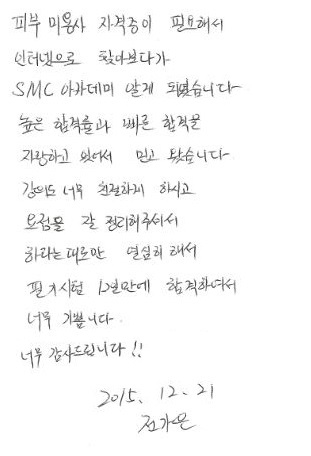 피부 미용사 자격증이 필요해서
인터넷으로 찾아보다가
SMC 아카데미 알게 되었습니다
높은 합격률과 빠른 합격을
자랑하고 있어서 믿고 왔습니다
강의도 너무 친절하게 하시고
요점을 잘 정리해주셔서
하라는대로만 열심히 해서
필기시험 12일만에 합격하여서
너무 기쁩니다.
너무 감사드립니다!!
2015. 12. 21
전가은